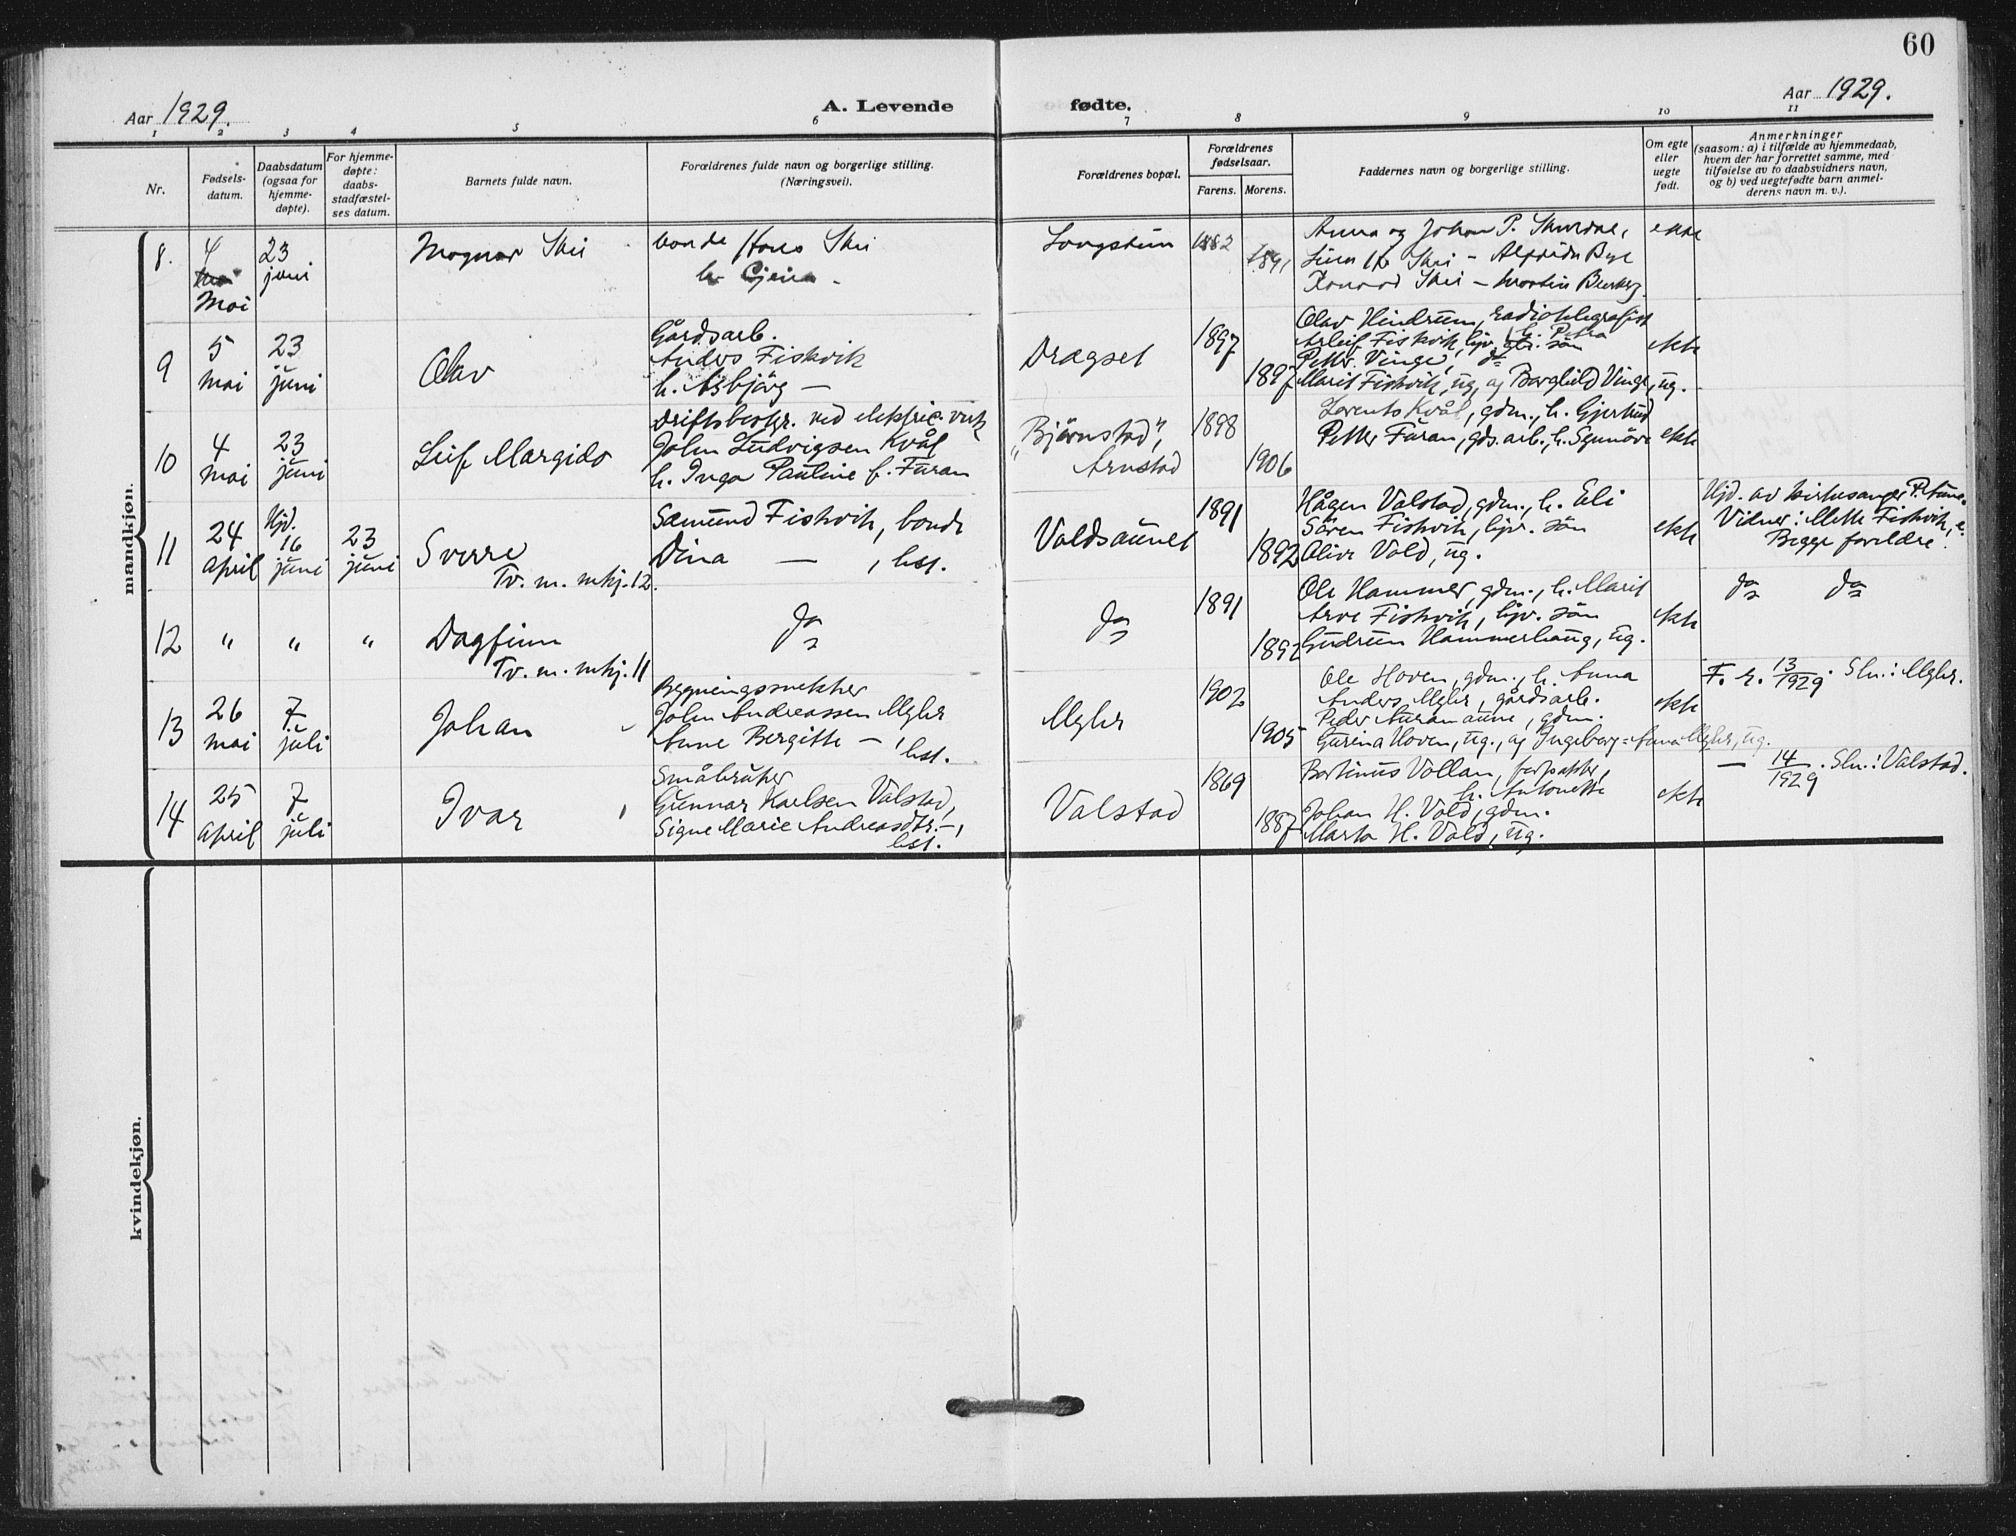 60
Aar 1929.
A. Levende
fødte.
Aar 1929.
1 2 3 4 5 6 7 8 9 10 11
Nr.
Fødsels-
datum.
Daabsdatum
(ogsaa for
hjemme-
døpte).
For hjemme-
døpte:
daabs-
stadfæstel-
ses datum.
Barnets fulde navn.
Forældrenes fulde navn og borgerlige stilling.
(Næringsvei).
Forældrenes bopæl.
Forældrenes
fødselsaar.
Farens. Morens.
Faddernes navn og borgerlige stilling.
Om egte
eller
uegte
født.
Anmerkninger
(saasom: a) i tilfælde av hjemmedaab,
hvem der har forrettet samme, med
tilføielse av to daabsvidners navn,
og b) ved uegtefødte barn anmel-
derens navn m. v.).
mandkjøn.
8.
4
Mai
23
juni
Magnar Skei
bonde Hans Skei
1882
1891
Anna og Johan P.
Skei – Alfrida Bye
Konrad Skei – Martin
9
5
mai
23
juni
Olav
Gårdsarb.
Anders Fiskvik
h. Asbjörg —
Dragset
1897
1897
Olav Hindrum, radiotelegrafist
Arleif Fiskvik, h. Petra
Petter Vinge, do
Marit Fiskvik, ug. og Borghild Vinge, ug.
ekte
10
4
mai
23
juni
Leif Margido
Driftsbestyr. ved elektric. verk
John Ludvigsen Kvål
h. Inga Pauline f. Furan
"Björnstad",
Arnstad
1898
1906
Lorents Kvål, gdm., h. Gjertrud
Petter Furan, gds.arb., h. Synnöve
ekte
11
24
april
Hjd.
16
juni
23
juni
Sverre
Tv. m. mkj. 12.
Sæmund Fiskvik, bonde
Dina — , hst.
Valdsaunet
1891
1892
Hågen Valstad, gdm., h. Eli
Sören Fiskvik, sön
Olive Vold, ug.
ekte
Hjd. av kirkesanger P. Aune.
Vidner: Mette Fiskvik,
Begge foreldre.
12
" " "
Dagfinn
Tv. m. mkj. 11
do
do
1891
1892
Ole Hammer, gdm., h. Marit
Arve Fiskvik, sön
Gudrun Hammerhaug, ug.
ekte
do do
13
26
mai
7
juli
Johan
Bygningssnekker
John Andreassen Mæhre
Anne Bergitte — , hst.
1902
1905
Ole Hoven, gdm., h. Anna
Anders gårdsarb.
Peder Auranaune, gdm.
Gurina Hoven, ug., og Ingeborg Anna ug.
ekte
F. r. 13/1929. Sln.:
14
25
april
7
juli
Ivar
Småbruker
Gunnar Karlsen Valstad,
Signe Marie Andreasdtr. — ,
hst.
Valstad
1869
1887
Bertinus Vollan, forpakter,
h. Antonette
Johan H. Vold, gdm.
Marta H. Vold, ug.
ekte
— 14/1929. Sln.: Valstad.
kvindekjøn.